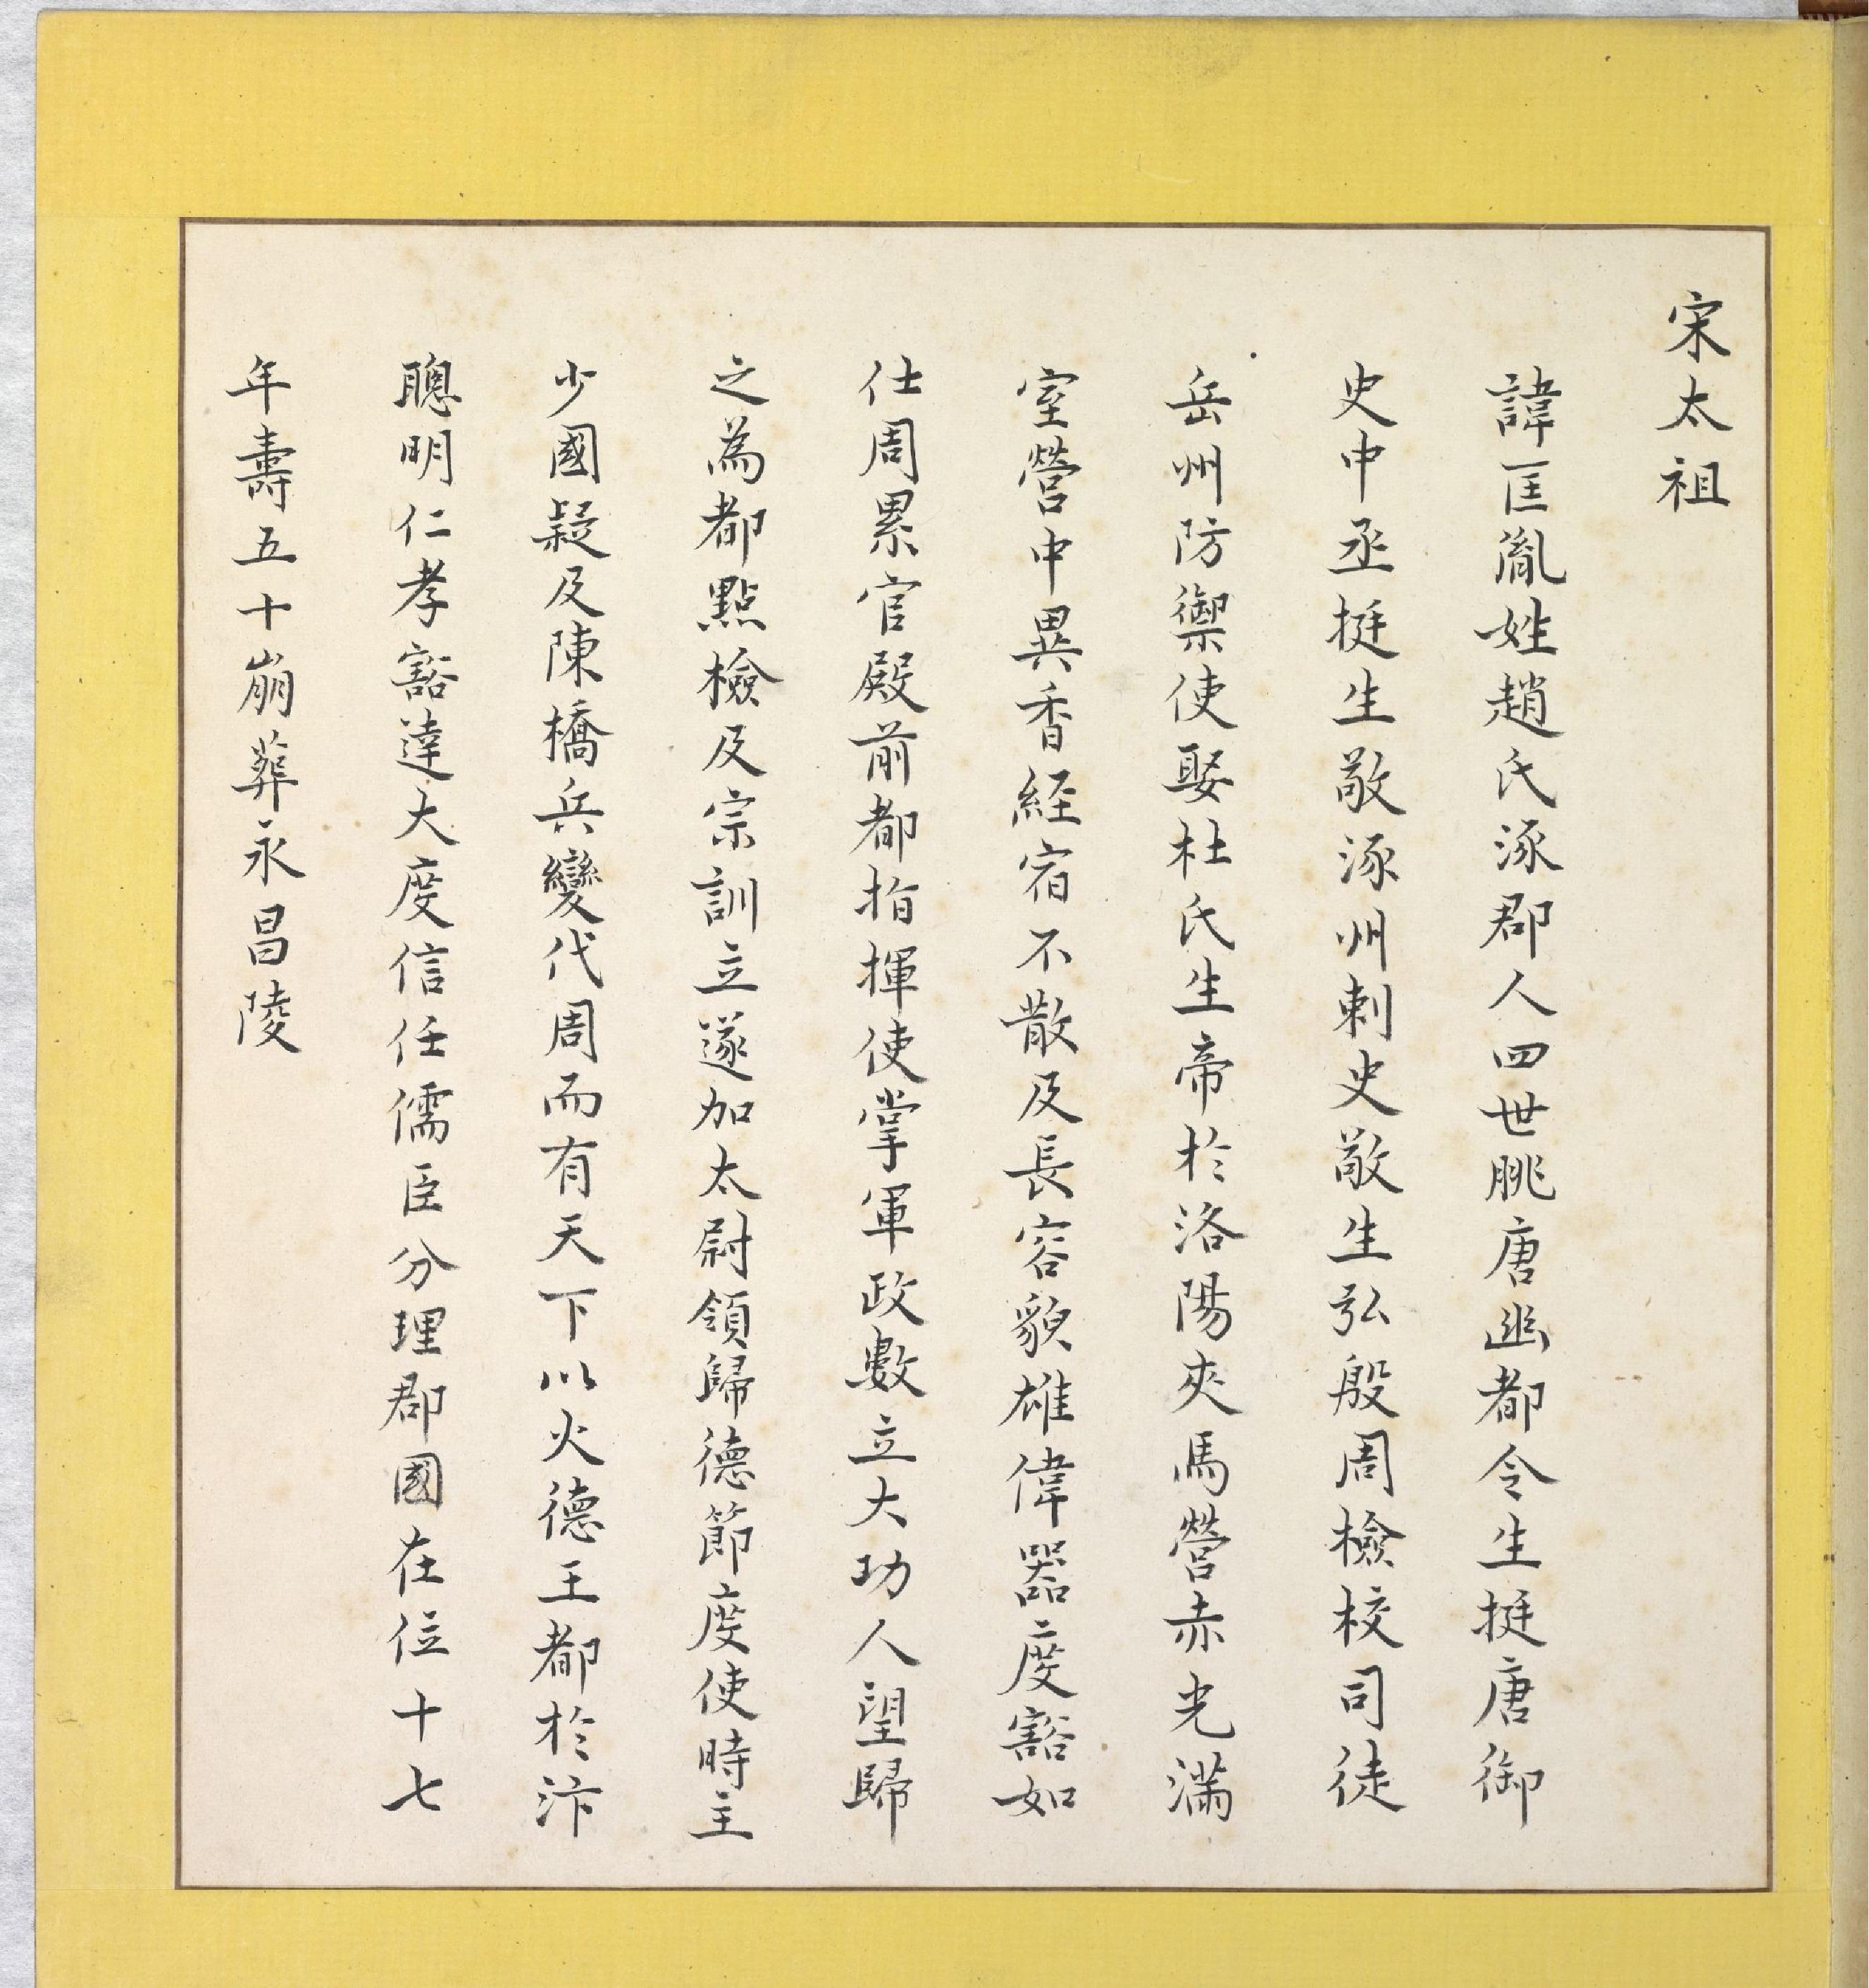 宋太祖
諱匡胤姓趙氏涿郡人四世朓唐幽都令生挺唐御
史中丞挺生敬涿州刺史敬生弘殷周檢校司徒
岳州防禦使娶杜氏生帝於洛陽夾馬營赤光滿
室營中異香経宿不散及長容貌雄偉器度豁如
仕周累官殿前都指揮使掌軍政數立大功人望歸
之為都點檢及宗訓立遂加太尉領歸德節度使時主
少國疑及陳橋兵變代周而有天下以火德王都於汴
聰明仁孝豁達大度信任儒臣分理郡國在位十七
年壽五十崩葬永昌陵